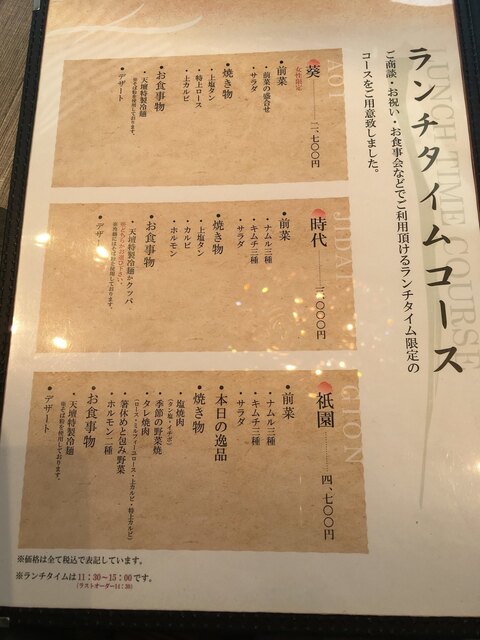 LUNCH TIME COURSE
ランチタイムコース
ご商談・お祝い・お食事会などでご利用頂けるランチタイム限定の
コースをご用意致しました。
AOI
葵 女性限定 二、七〇〇円
●前菜
・前菜の盛合せ
・サラダ
●焼き物
・上塩タン
・特上ロース
・上カルビ
●お食事物
・天壇特製冷麺
※そば粉を使用しております。
●デザート
JIDAI
時代 三、〇〇〇円
●前菜
・ナムル三種
・キムチ三種
・サラダ
●焼き物
・上塩タン
・カルビ
・ホルモン
●お食事物
・天壇特製冷麺かクッパ
※どちらかお選び下さい。
※冷麺にはそば粉を使用しております。
●デザート
GION
祇園 四、七〇〇円
●前菜
・ナムル三種
・キムチ三種
・サラダ
●本日の逸品
●焼き物
・塩焼肉
(タン塩・イチボ)
・季節の野菜焼
・タレ焼肉
(ロース・ミルフィーユロース・上カルビ・特上カルビ)
・箸休めと包み野菜
・ホルモン二種
●お食事物
・天壇特製冷麺
※そば粉を使用しております。
●デザート
※価格は全て税込で表記しています。
※ランチタイムは11:30~15:00です。
(ラストオーダー14:30)